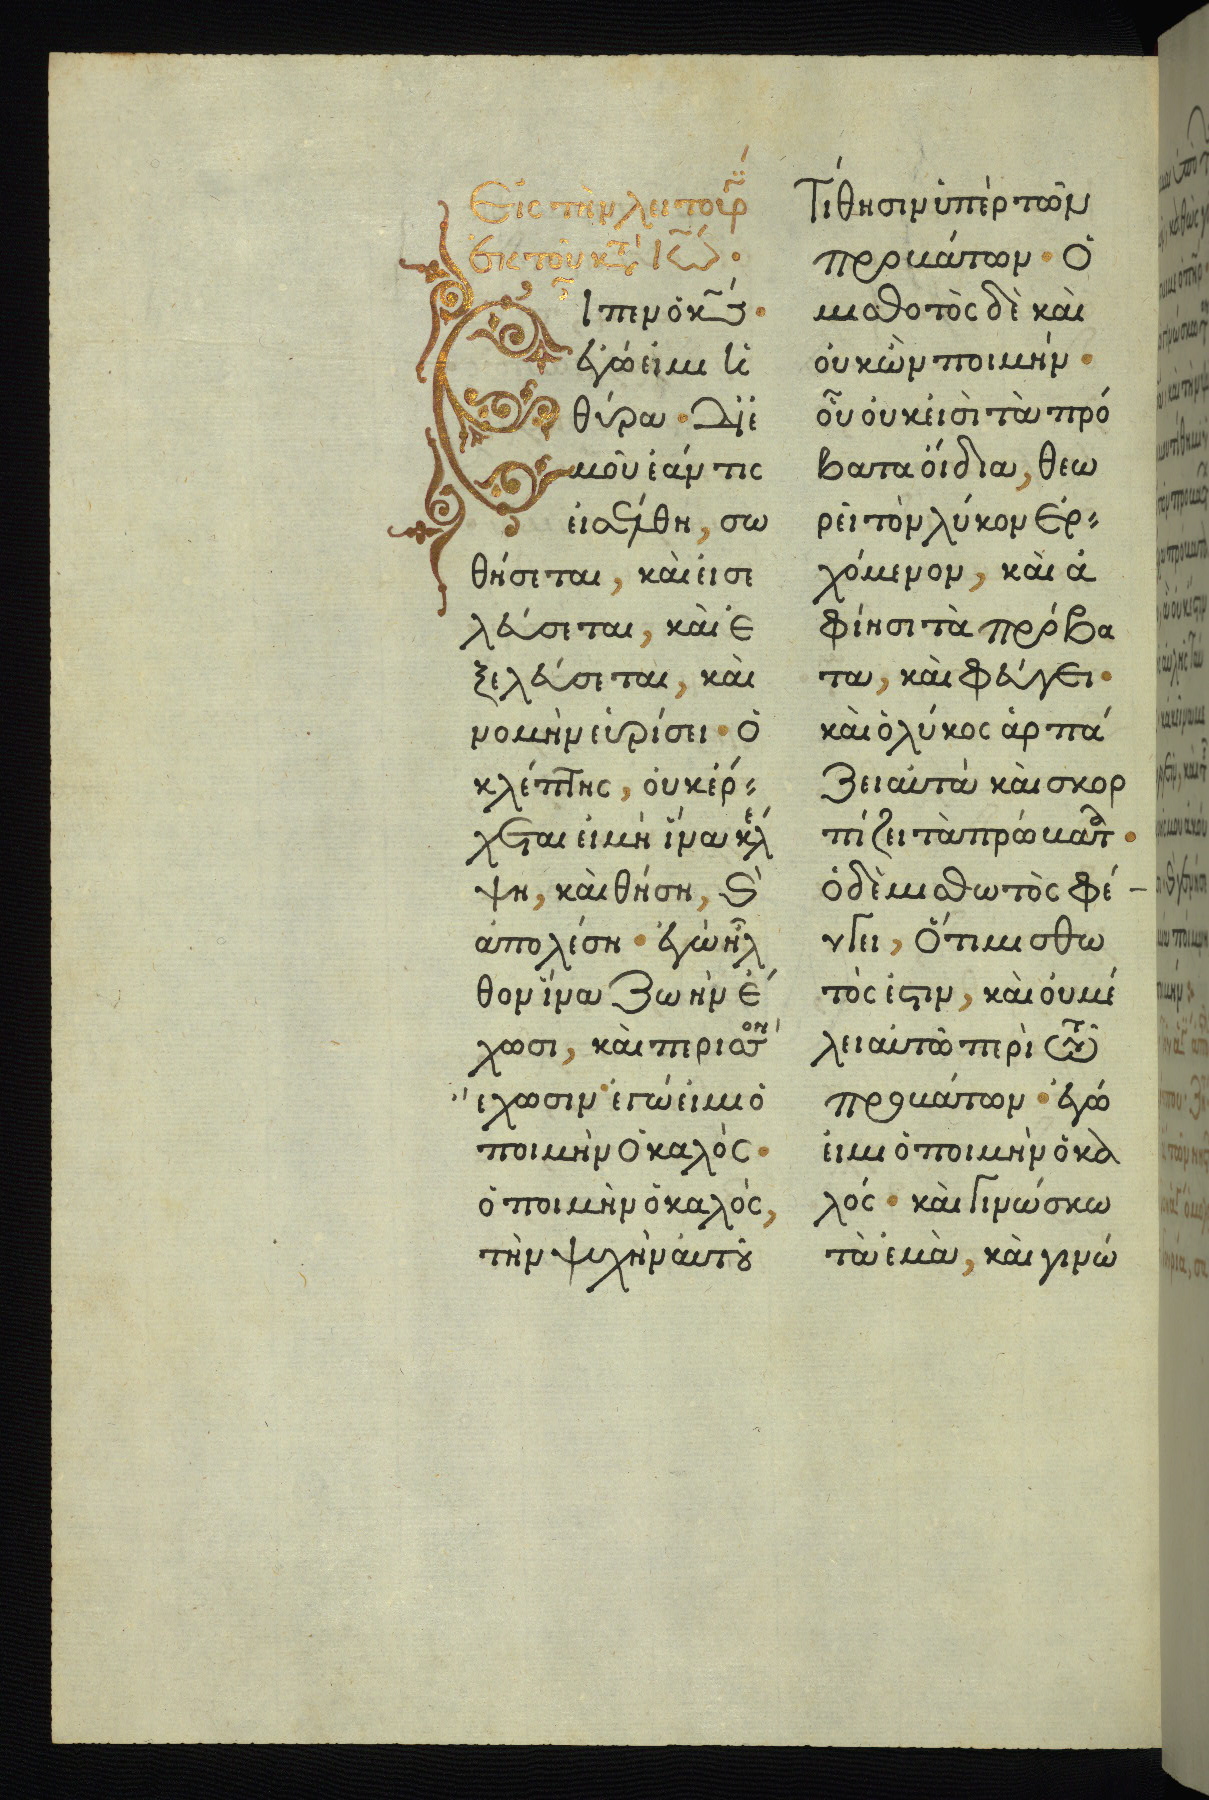 Εἰς τὴν λειτουρ
ἐκ τοῦ κτ Ἰω.
Εἶπεν ὁ κς·
ἐγώ εἰμι ἡ
θύρα· δι' ἐ
μοῦ ἐάν τις
εἰσέλθη, σω
θήσεται, καὶ εἰσε
λεύσεται, καὶ ἐ
ξελεύσεται, καὶ
νομὴν εὑρίσει· ὁ
κλέπτης, οὐκ ἔρ-
χεται εἰμὴ ἵνα κλέ
ψη, καὶ θύση, καὶ
ἀπολέση· ἐγὼ ἦλ
θον ἵνα ζωὴν ἔ
χωσι, καὶ περισσὸν
ἔχωσιν· ἐγώ εἰμι ὁ
ποιμὴν ὁ καλός·
ὁ ποιμὴν ὁ καλός,
τὴν ψυχὴν αὐτοῦ
τίθησιν ὑπὲρ τῶν
προβάτων· ὁ
μισθοτὸς δὲ καὶ
οὐκ ὢν ποιμήν·
οὗ οὐκ εἰσὶ τὰ πρό
βατα ὅιδια, θεω
ρεῖ τὸν λύκον ἐρ-
χόμενον, καὶ ἀ
φίησι τὰ πρόβα
τα, καὶ φεύγει·
καὶ ὁ λύκος ἁρπά
ζει αὐτὰ καὶ σκορ
πίζει τὰ πρόβατα·
ὁ δὲ μισθωτὸς φεύ
γει, ὅτι μισθω
τός ἐστιν, καὶ οὐ μέ
λει αὐτῶ περὶ τῶν
προβάτων· ἐγώ
εἰμι ὁ ποιμὴν ὁ κα
λός· καὶ γινώσκω
τὰ ἐμὰ, καὶ γινώ